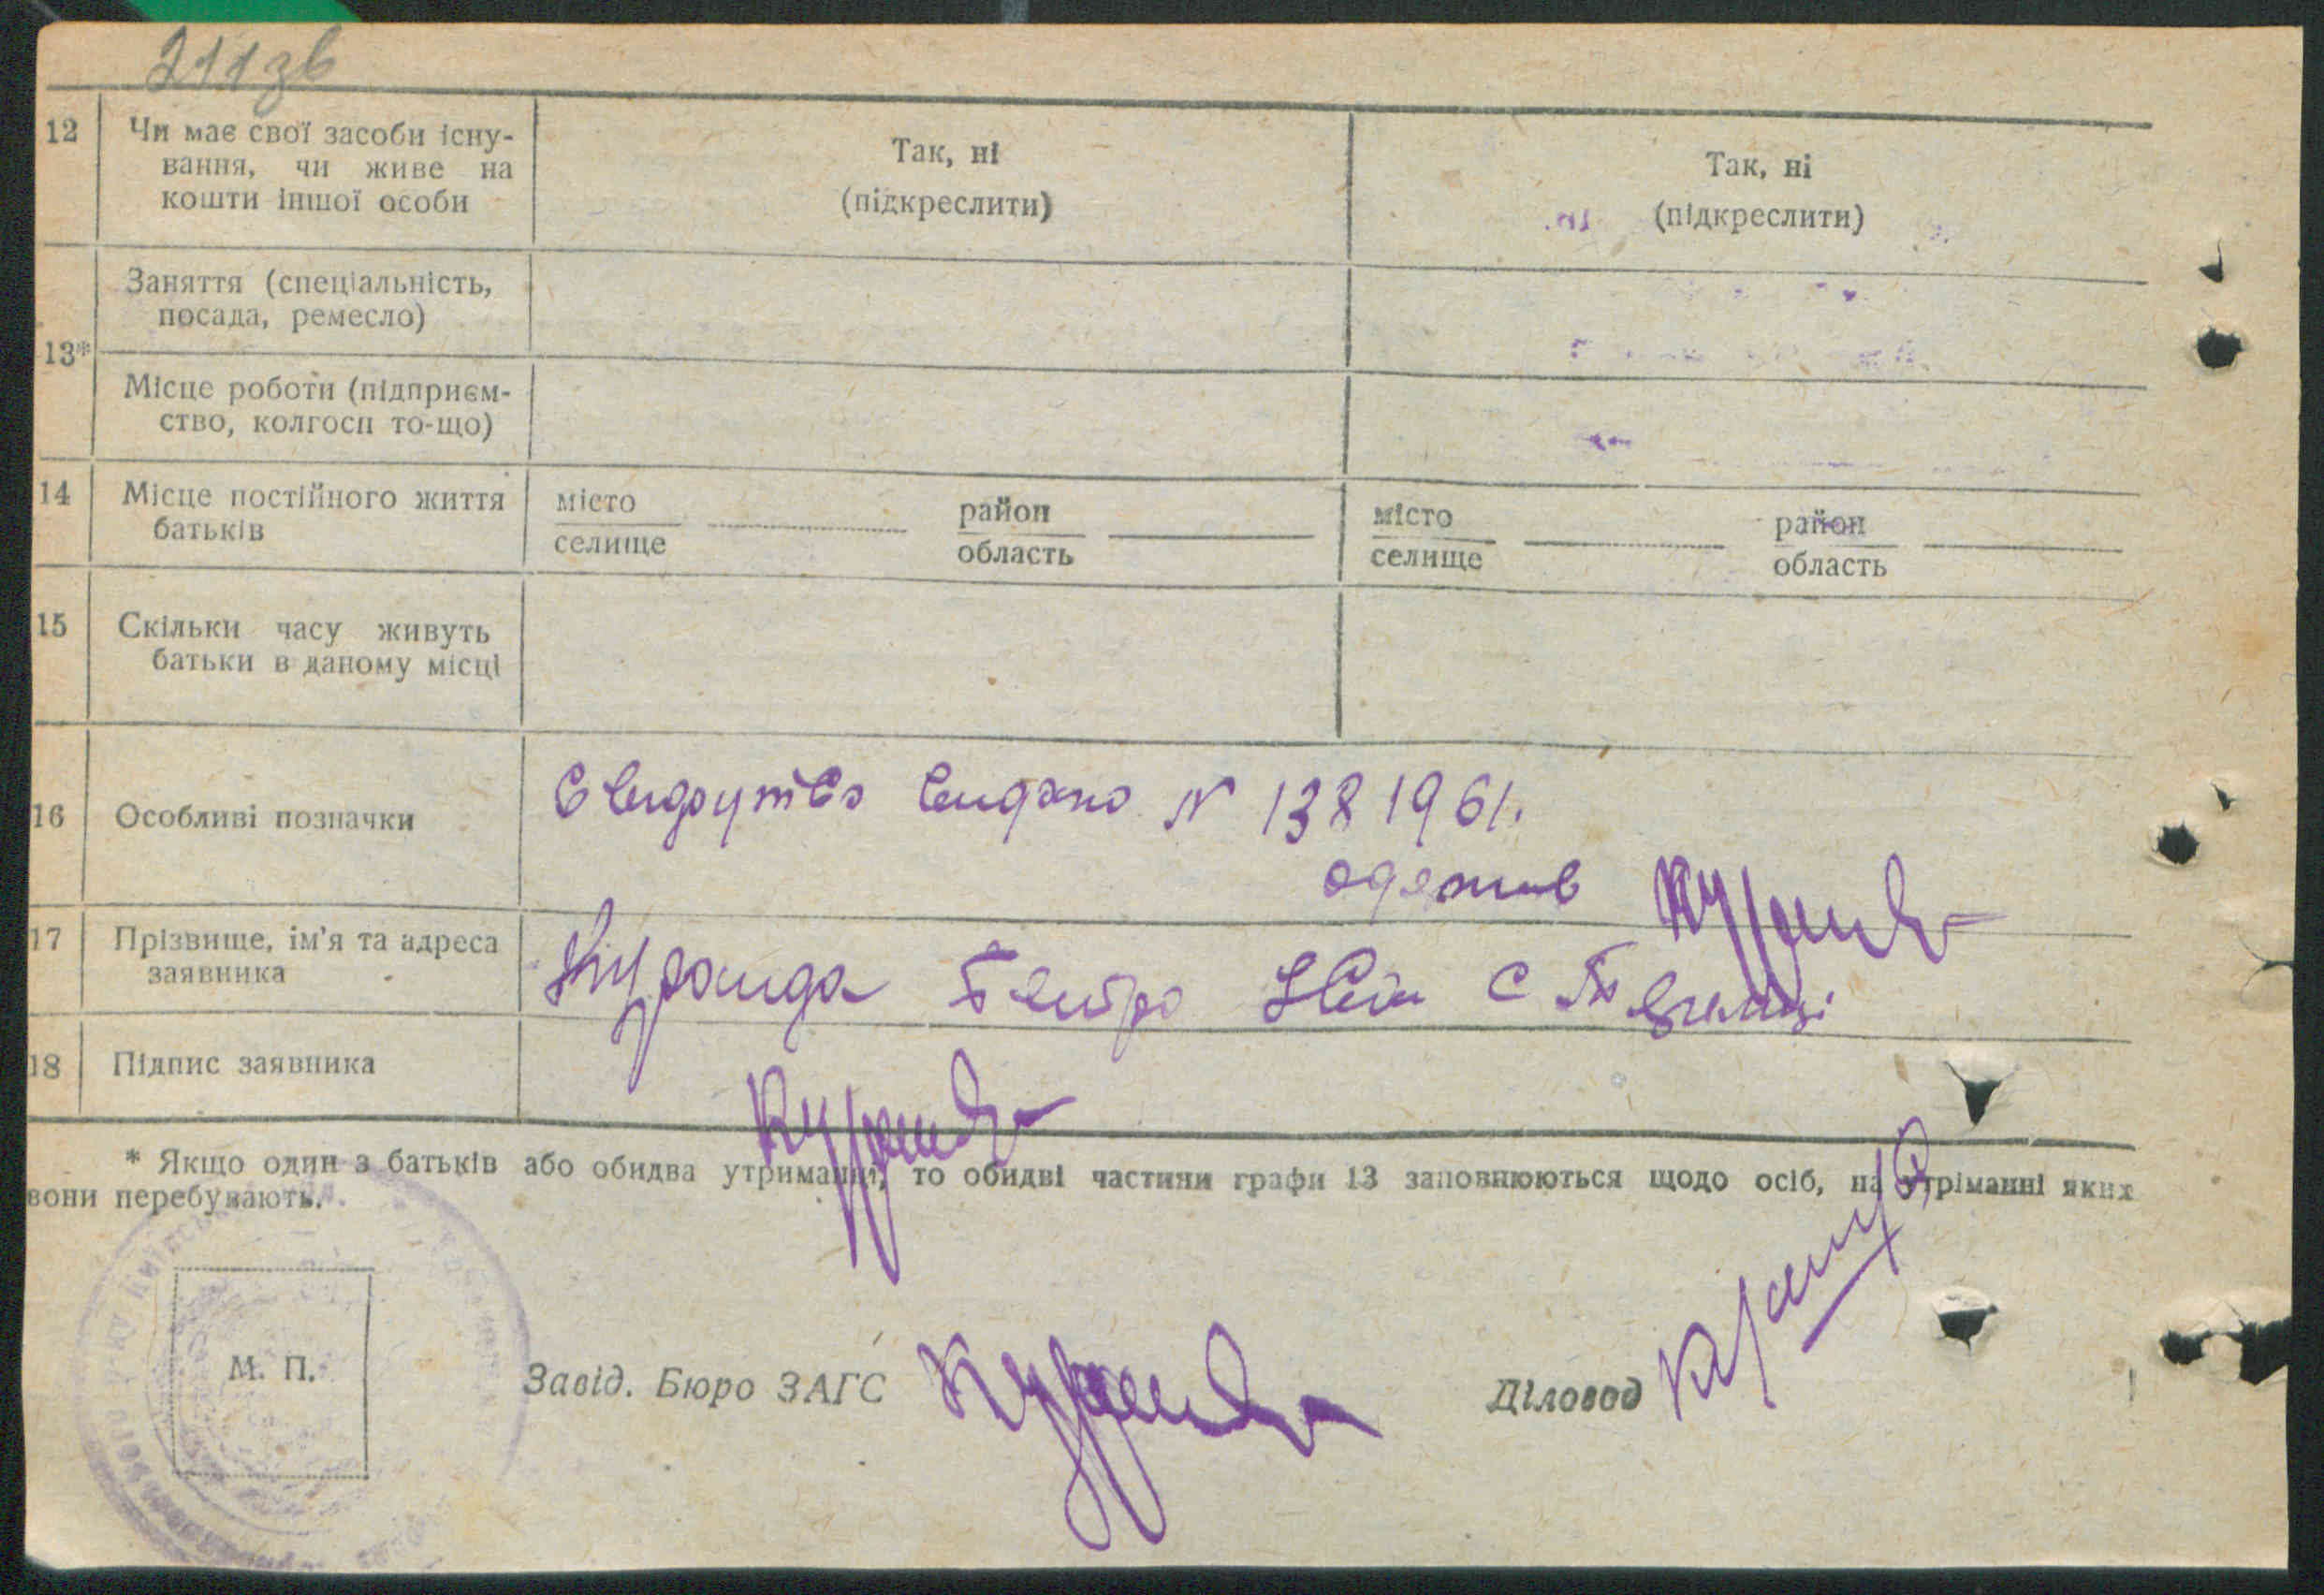 211зв
12 Чи має свої засоби існу-
вання, чи живе на
кошти іншої особи
Так, ні
(підкреслити)
Так, ні
(підкреслити)
13*
Заняття (спеціальність,
посада, ремесло)
Місце роботи (підприєм-
ство, колгосп то-що)
14 Місце постійного життя
батьків
місто
селище
район
область
місто
селище
район
область
15 Скільки часу живуть
батьки в даному місці
16 Особливі позначки
видано N 138 1961.
17 Прізвище, ім’я та адреса
заявника
Куранда с
18 Підпис заявника
* Якщо один з батьків або обидва утриманці, то обидві частини графи 13 заповнюються щодо осіб, на утріманні яких
вони перебувають.
М. П.
Завід. Бюро ЗАГС
Діловод